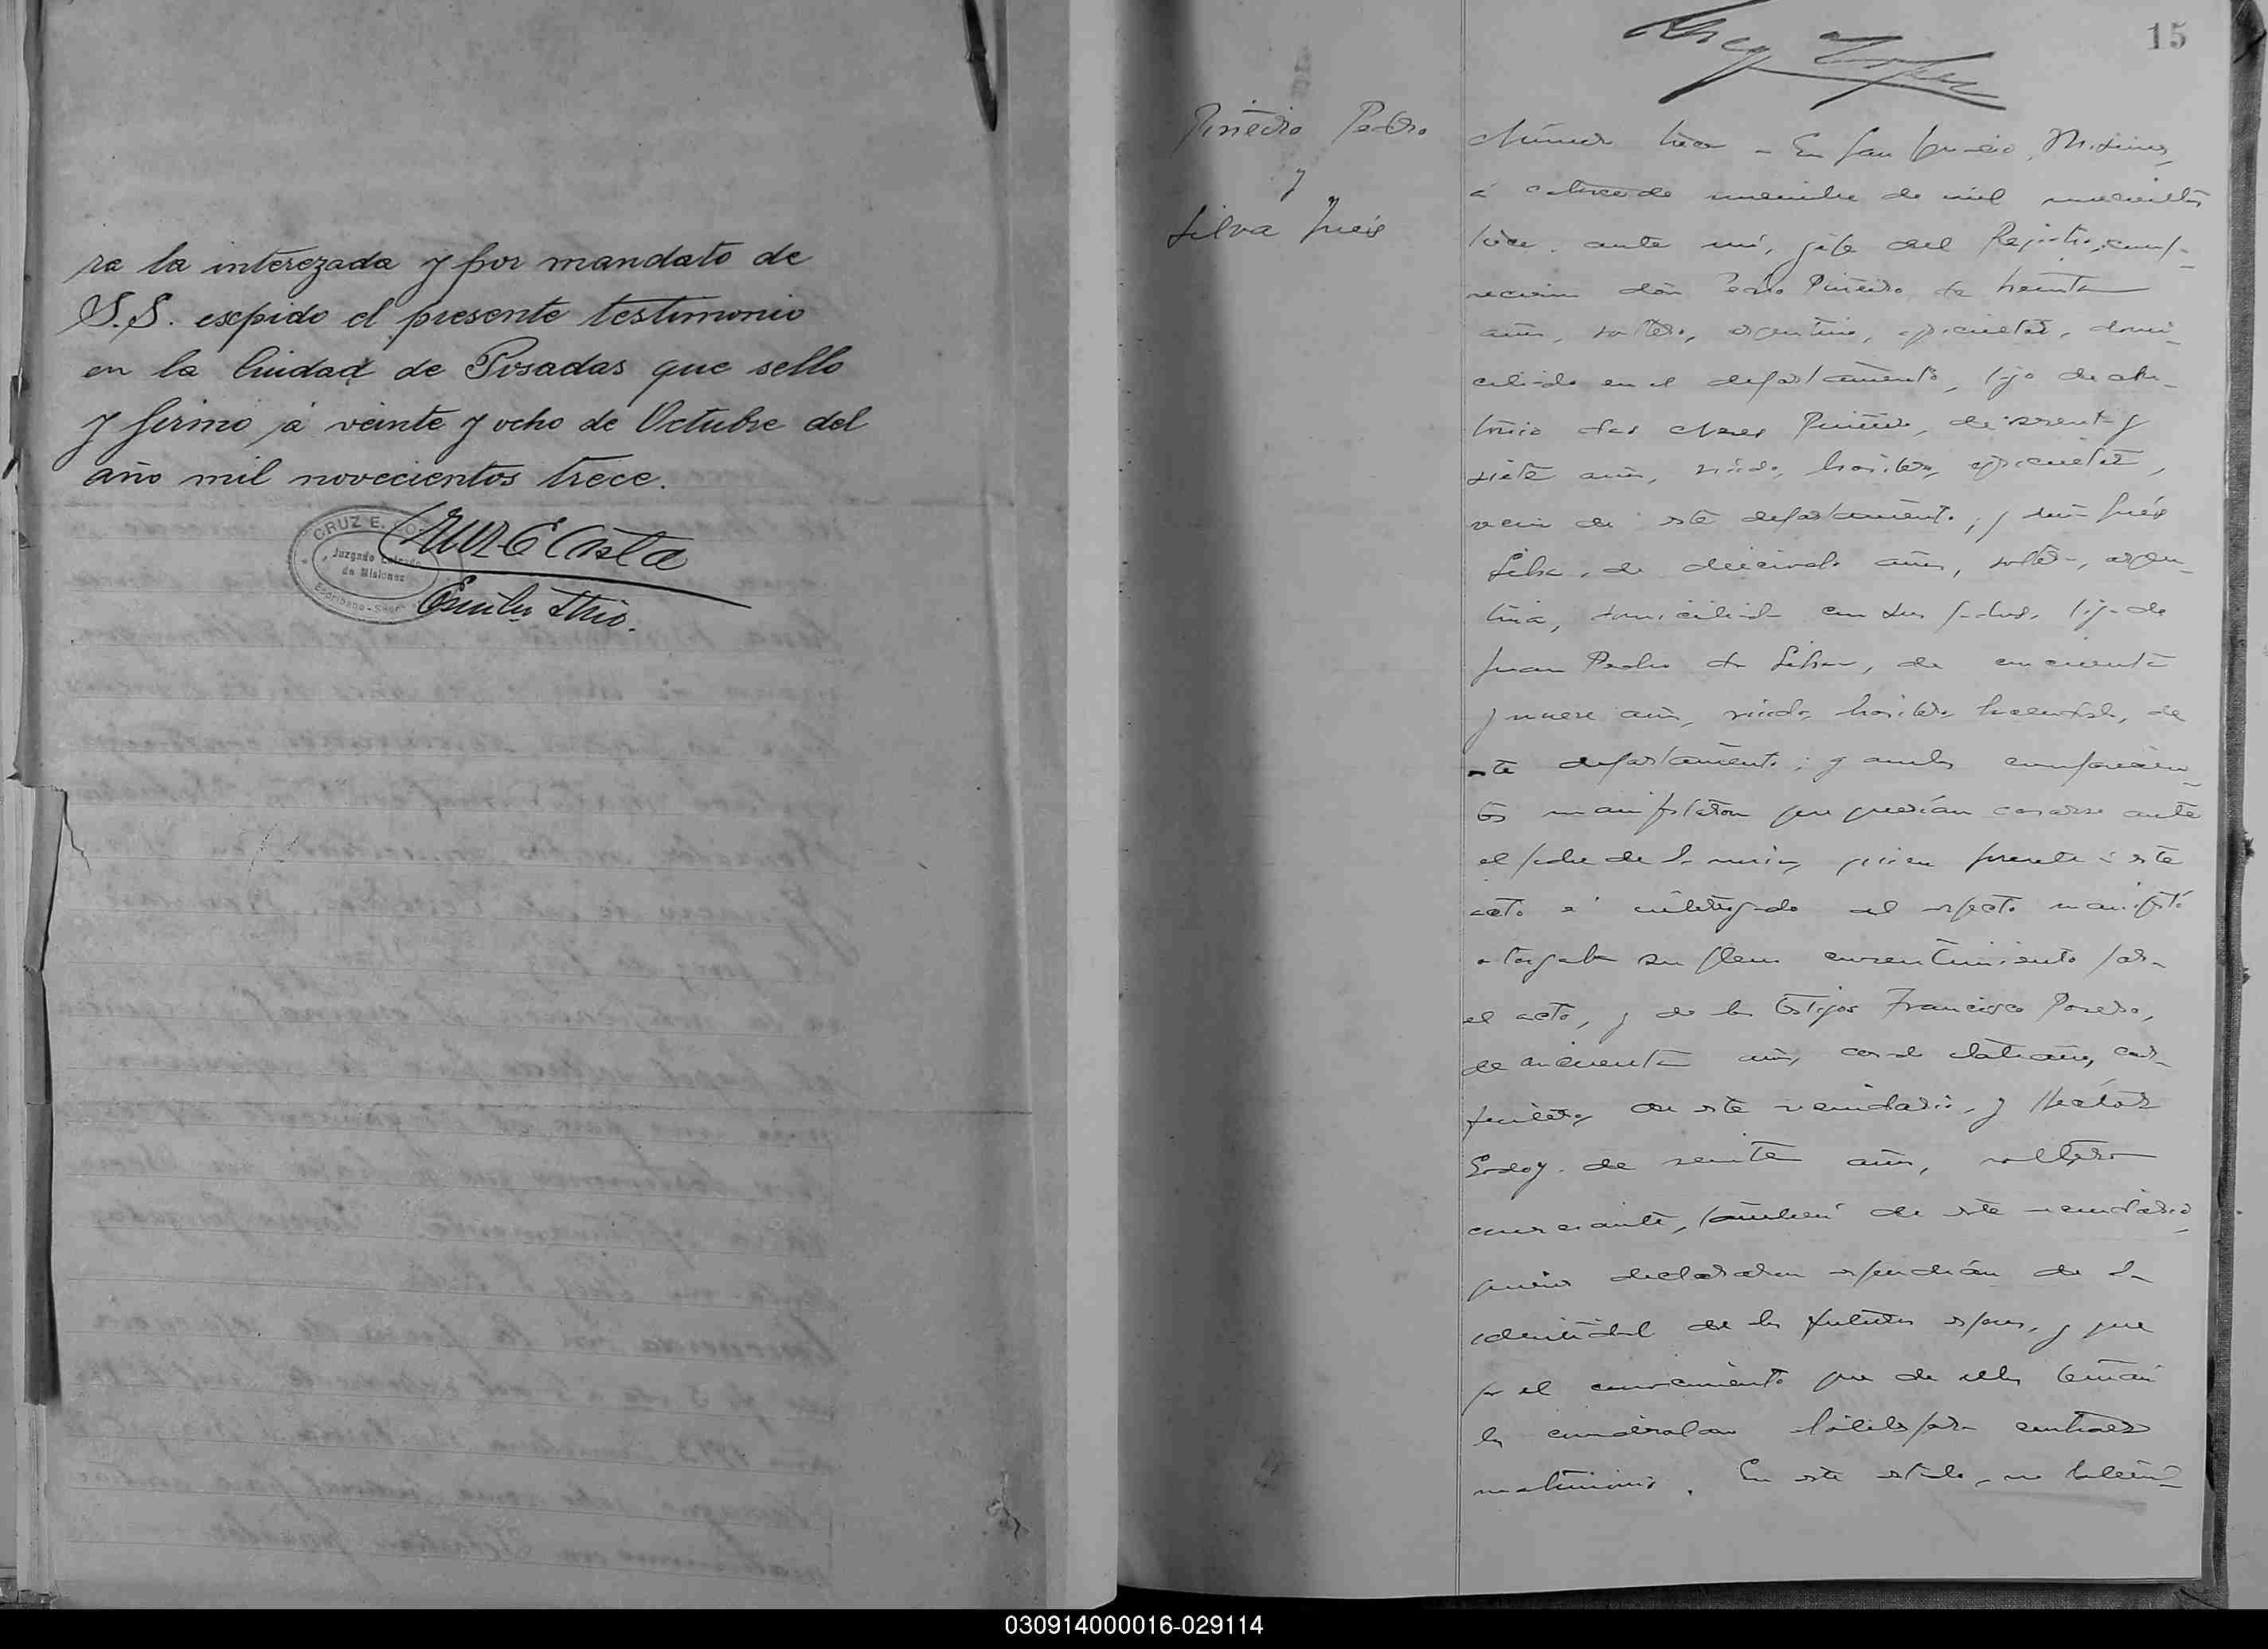 ra la interezada y por mandato de
S.S. expido el presente testimonio
en la Ciudad de Posadas que sello
y firmo á veinte y ocho de Octubre del
año mil novecientos trece.
CRUZ E. CO
Juzgado Letrado
de Misiones
Escribano-Secr
Cruz E Costa
Emilio
15
Piñeiro Pedro
y
Silva Inés
Número trece - En San Ignacio, Misiones,
á catorce de noviembre de mil novecientos
trece, ante mí, jefe del Registro, comp-
recieron don Pedro Piñeiro de treinta
años, soltero, argentino, agricultor, domi-
ciliado en el departamento, hijo de An-
tonio das Neves Piñeiro, de sesenta y
siete años, viudo, brasilero, agricultor,
vecino de este departamento; y doña Inés
Silva, de dieciocho años, soltera, argen-
tina, domiciliada con sus padres, hija de
Juan Pedro da Silva, de cincuenta
y nueve años, viudo, brasilero, hacendado, de
este departamento; y ambos comparecien-
tes manifestaron que querían casarse ante
el padre de la novia, quien presente á este
acto é interrogado al respecto manifestó
otorgaba su pleno consentimiento para
el acto, y de los testigos Francisco
de cincuenta años, casado, italiano, car-
pintero, de este vecindario, y Héctor
Godoy de veinte años, soltero
comerciante, también de este vecindario,
quienes declararon respondían de la
identidad de los futuros esposos, y que
por el conocimiento que de ellos tenían
los consideraban hábiles para contraer
matrimonio. En este estado, no habien-